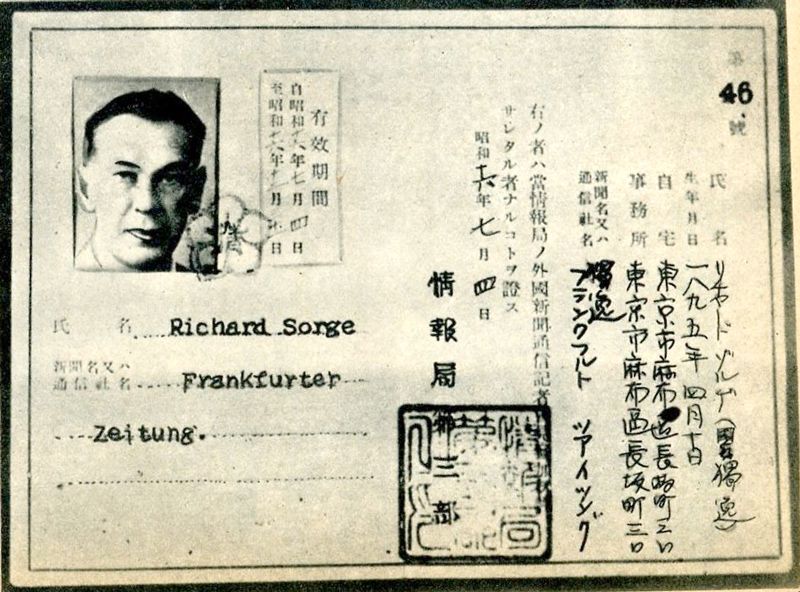 第
46
號
氏名 リヒヤード ゾルゲ (國籍獨逸)
生年月日 一八九五年 四月十日
自宅 東京市麻布区長坂町三〇
事務所 東京市麻布區長坂町三〇
新聞名又ハ
通信社名
獨逸
フランクフルト ツアイツング
右ノ者ハ當情報局ノ外國新聞通信記者
サレタル者ナルコトヲ證ス
昭和十六年七月四日
情報局第三部
有效期間
自昭和十六年七月四日
至昭和十六年十二月 日
氏名 Richard Sorge
新聞名又ハ
通信社名
Frankfurter
Zeitung.